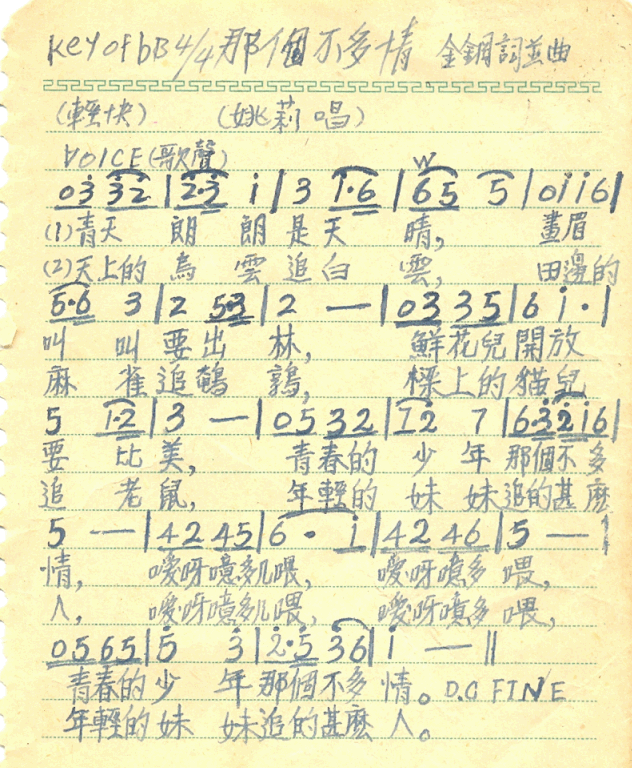 key of bB 4/4 那個不多情 金鋼詞並曲
(輕快) (姚莉唱)
VOICE(歌聲)
03 32 | 2·3 i | 3 i·6 | 65 5 | 0ii6 |
(1)青天 朗 朗 是 天 晴, 畫眉
(2)天上的 烏 雲 追 白 雲, 田邊的
5·6 3 | 2 53 | 2 — | 03 35 | 6 i · |
叫 叫 要 出 林, 鮮花兒開放
麻 雀 追 鵪 鶉, 樑上的貓兒
5 i·2 | 3 — | 05 32 | i2 7 | 63 2i6 |
要 比 美, 青春的 少 年 那個不多
追 老 鼠, 年輕的 妹 妹追的甚麼
5 — | 42 45 | 6 · i | 42 46 | 5 — |
情, 噯呀噫多儿喂, 噯呀噫多 喂,
人, 噯呀噫多儿喂, 噯呀噫多 喂,
0565 | 5 3 | 2·5 36 | i — ||
青春的少 年那個不多 情。 D.C FINE
年輕的妹 妹追的甚麼 人。